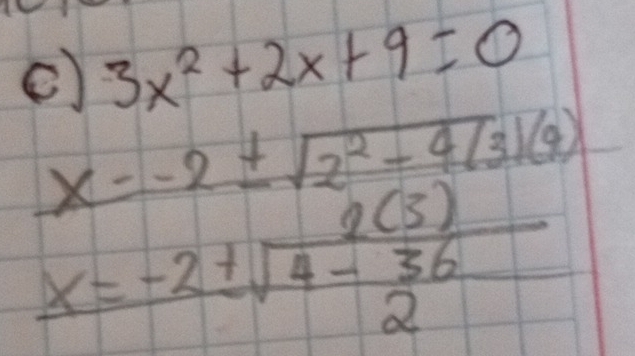 c) 3x² + 2x + 9 = 0
x = -2 ± √2² - 4(3)(9)
2(3)
x = -2 ± √4 - 36
2